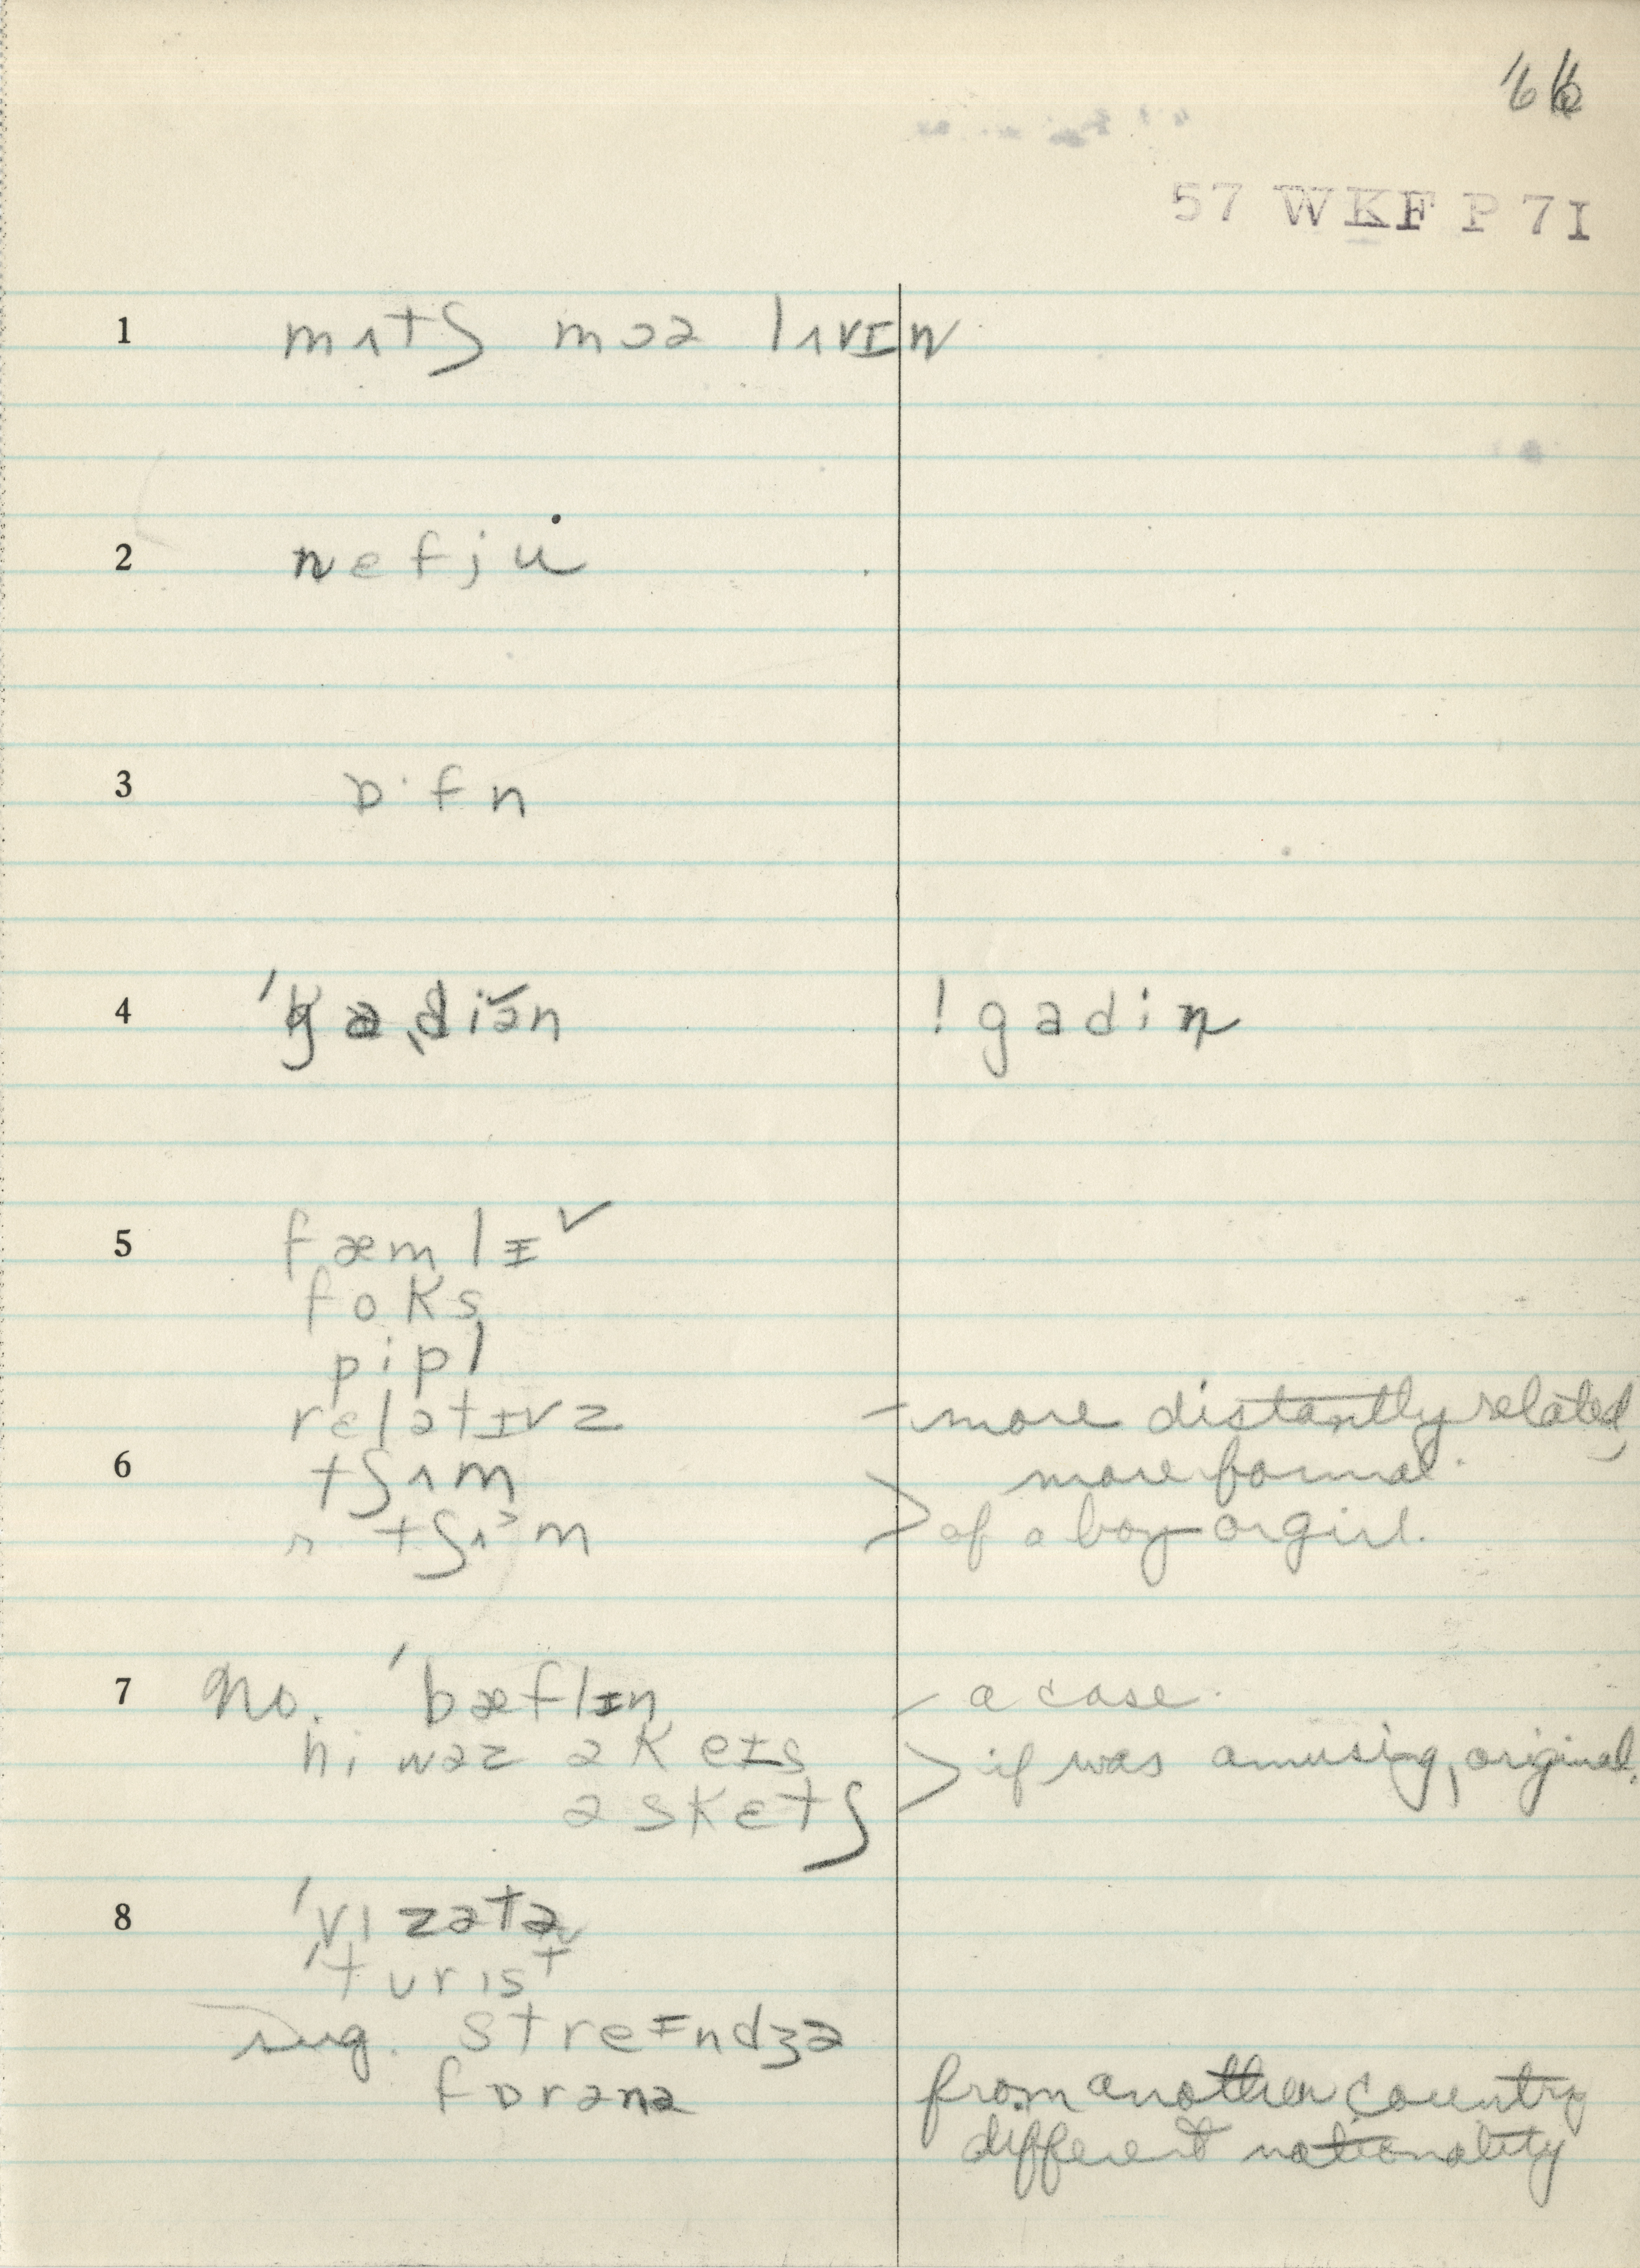 66
57 WKF P 7I
1 mʌtʃ moə lʌvɪn
2 nefju
3 ɒ·fn
4 ˈgaˌdiən ! gadin
5 fæmlɪ ✓
foks
pipl
relətɪvz – more distantly related,
6 tʃʌm more formal.
tʃʌm > of a boy or girl.
7 No. ˈbæflɪn / a case.
hi waz ə keɪs > if was amusing, original.
ə sketʃ
8 ˈvɪzətə
ˈturɪst
sug. streɪndʒə
fɒrənə from another country
different nationality